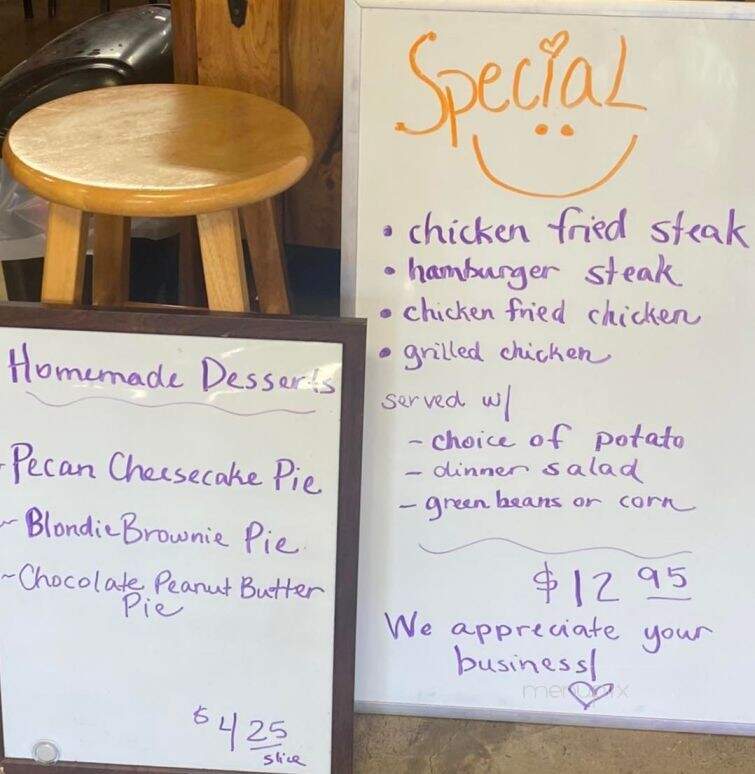 Special
• chicken fried steak
• hamburger steak
• chicken fried chicken
• grilled chicken
served w/
- choice of potato
- dinner salad
- green beans or corn
$12 95
We appreciate your
business!
menupix
Homemade Desserts
- Pecan Cheesecake Pie
~ Blondie Brownie Pie
~ Chocolate Peanut Butter
Pie
$4 25
slice